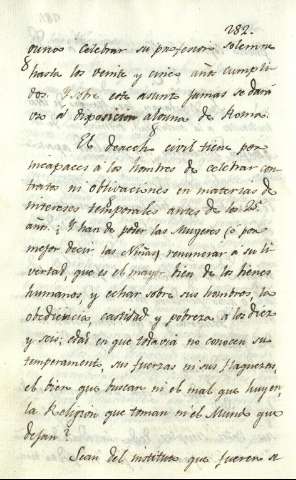 282.
gunos celebrar su profesion solemne
hasta los veinte y cinco años cumpli-
dos. Y sobre este asunto jamas se dará
oìdo á disposicion alguna de Roma.
El derecho civil tiene por
incapaces á los hombres de celebrar con
tratos ni obligaciones en materias de
intereses temporales antes de los 25
años. ¿Y han de poder las Mugeres (o por
mejor decir las Niñas) renunciar á su li-
vertad, que es el mayor bien de los bienes
humanos, y echar sobre sus hombros, la
obediencia, castidad y pobreza á los diez
y seis; edad en que todavia no conocen su
temperamento, sus fuerzas ni sus flaquezas,
el bien que buscan ni el mal que huyen,
la Religion que toman ni el Mundo que
dejan?
Sean del instituto que fueren se